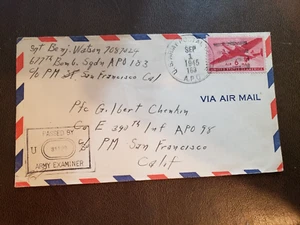 Sgt Benj. Watson 7087424
677th Bomb. Sqdn APO 183
c/o PM San Francisco Cal
U.S. ARMY
SEP
1
1945
A.P.O.
VIA AIR MAIL
Pfc Gilbert Chenkin
Co E 390th Inf APO 98
c/o PM San Francisco
Calif
PASSED BY
U
ARMY EXAMINER